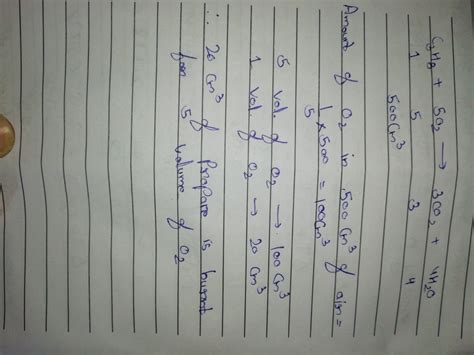 C3H8 + 5O2 → 3CO2 + 4H2O
1 5 3 4
500cm³
Amount of O2 in 500cm³ of air =
1/5 × 500 = 100cm³
5 vol. of O2 → 100cm³
1 vol. of O2 → 20cm³
∴ 20cm³ of Propane is burnt
from 5 volume of O2